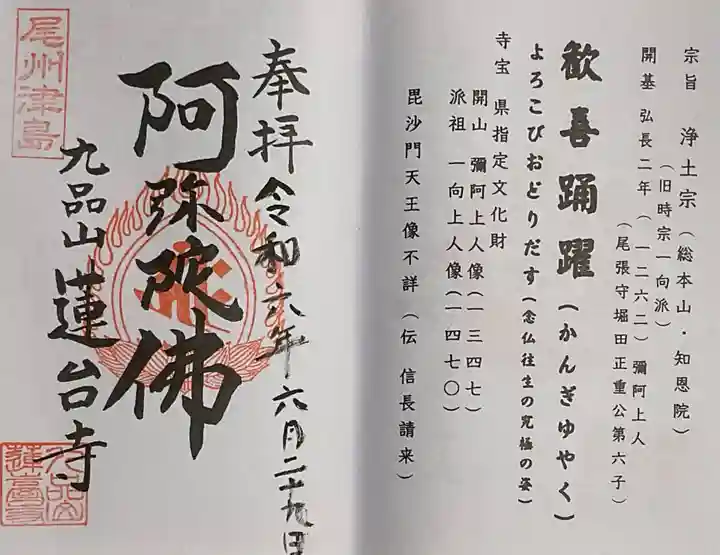 宗旨　浄土宗（総本山・知恩院）
（旧時宗一向派）
開基　弘長二年（一二六二）彌阿上人
（尾張守堀田正重公第六子）
歓喜踊躍（かんぎゆやく）
よろこびおどりだす（念仏往生の究極の姿）
寺宝　県指定文化財
開山　彌阿上人像（一三四七）
派祖　一向上人像（一四七〇）
毘沙門天王像不詳（伝　信長請来）
奉拝　令和六年六月二十九日
阿弥陀佛
九品山　蓮台寺
尾州津島